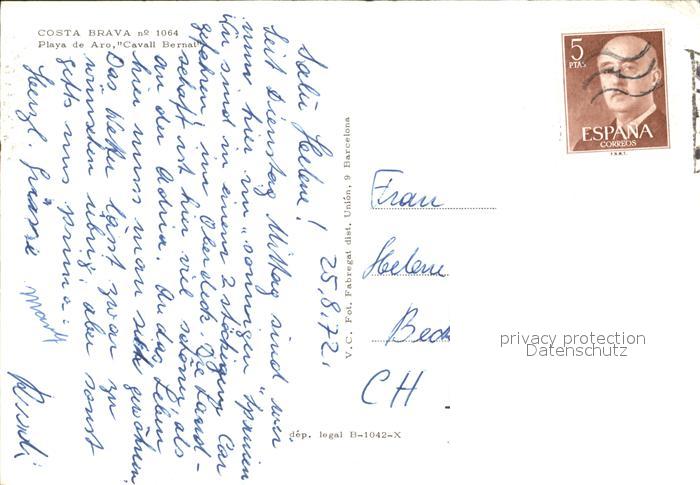 COSTA BRAVA nº 1064
Playa de Aro, "Cavall Bernat"
Salü Helene!
25.8.72.
Seit Dienstag Mittag sind wir
nun hier im "sonnigen" Spanien
Wir sind in einem 2 stöckigen Car
gefahren, im Oberdeck. Die Land-
schaft ist hier viel schöner als
an der Adria. An das Leben
hier muss man sich gewöhnen.
Das Wetter lässt zwar zu
wünschen übrig, aber sonst
geht's uns prima.
Herzl. Grüsse
Ruedi
V. C. Fot. Fabregat dist. Unión, 9 Barcelona
dép. legal B-1042-X
5
PTAS
ESPAÑA
CORREOS
F.N.M.T.
Frau
Helene
Beck
CH
privacy protection
Datenschutz